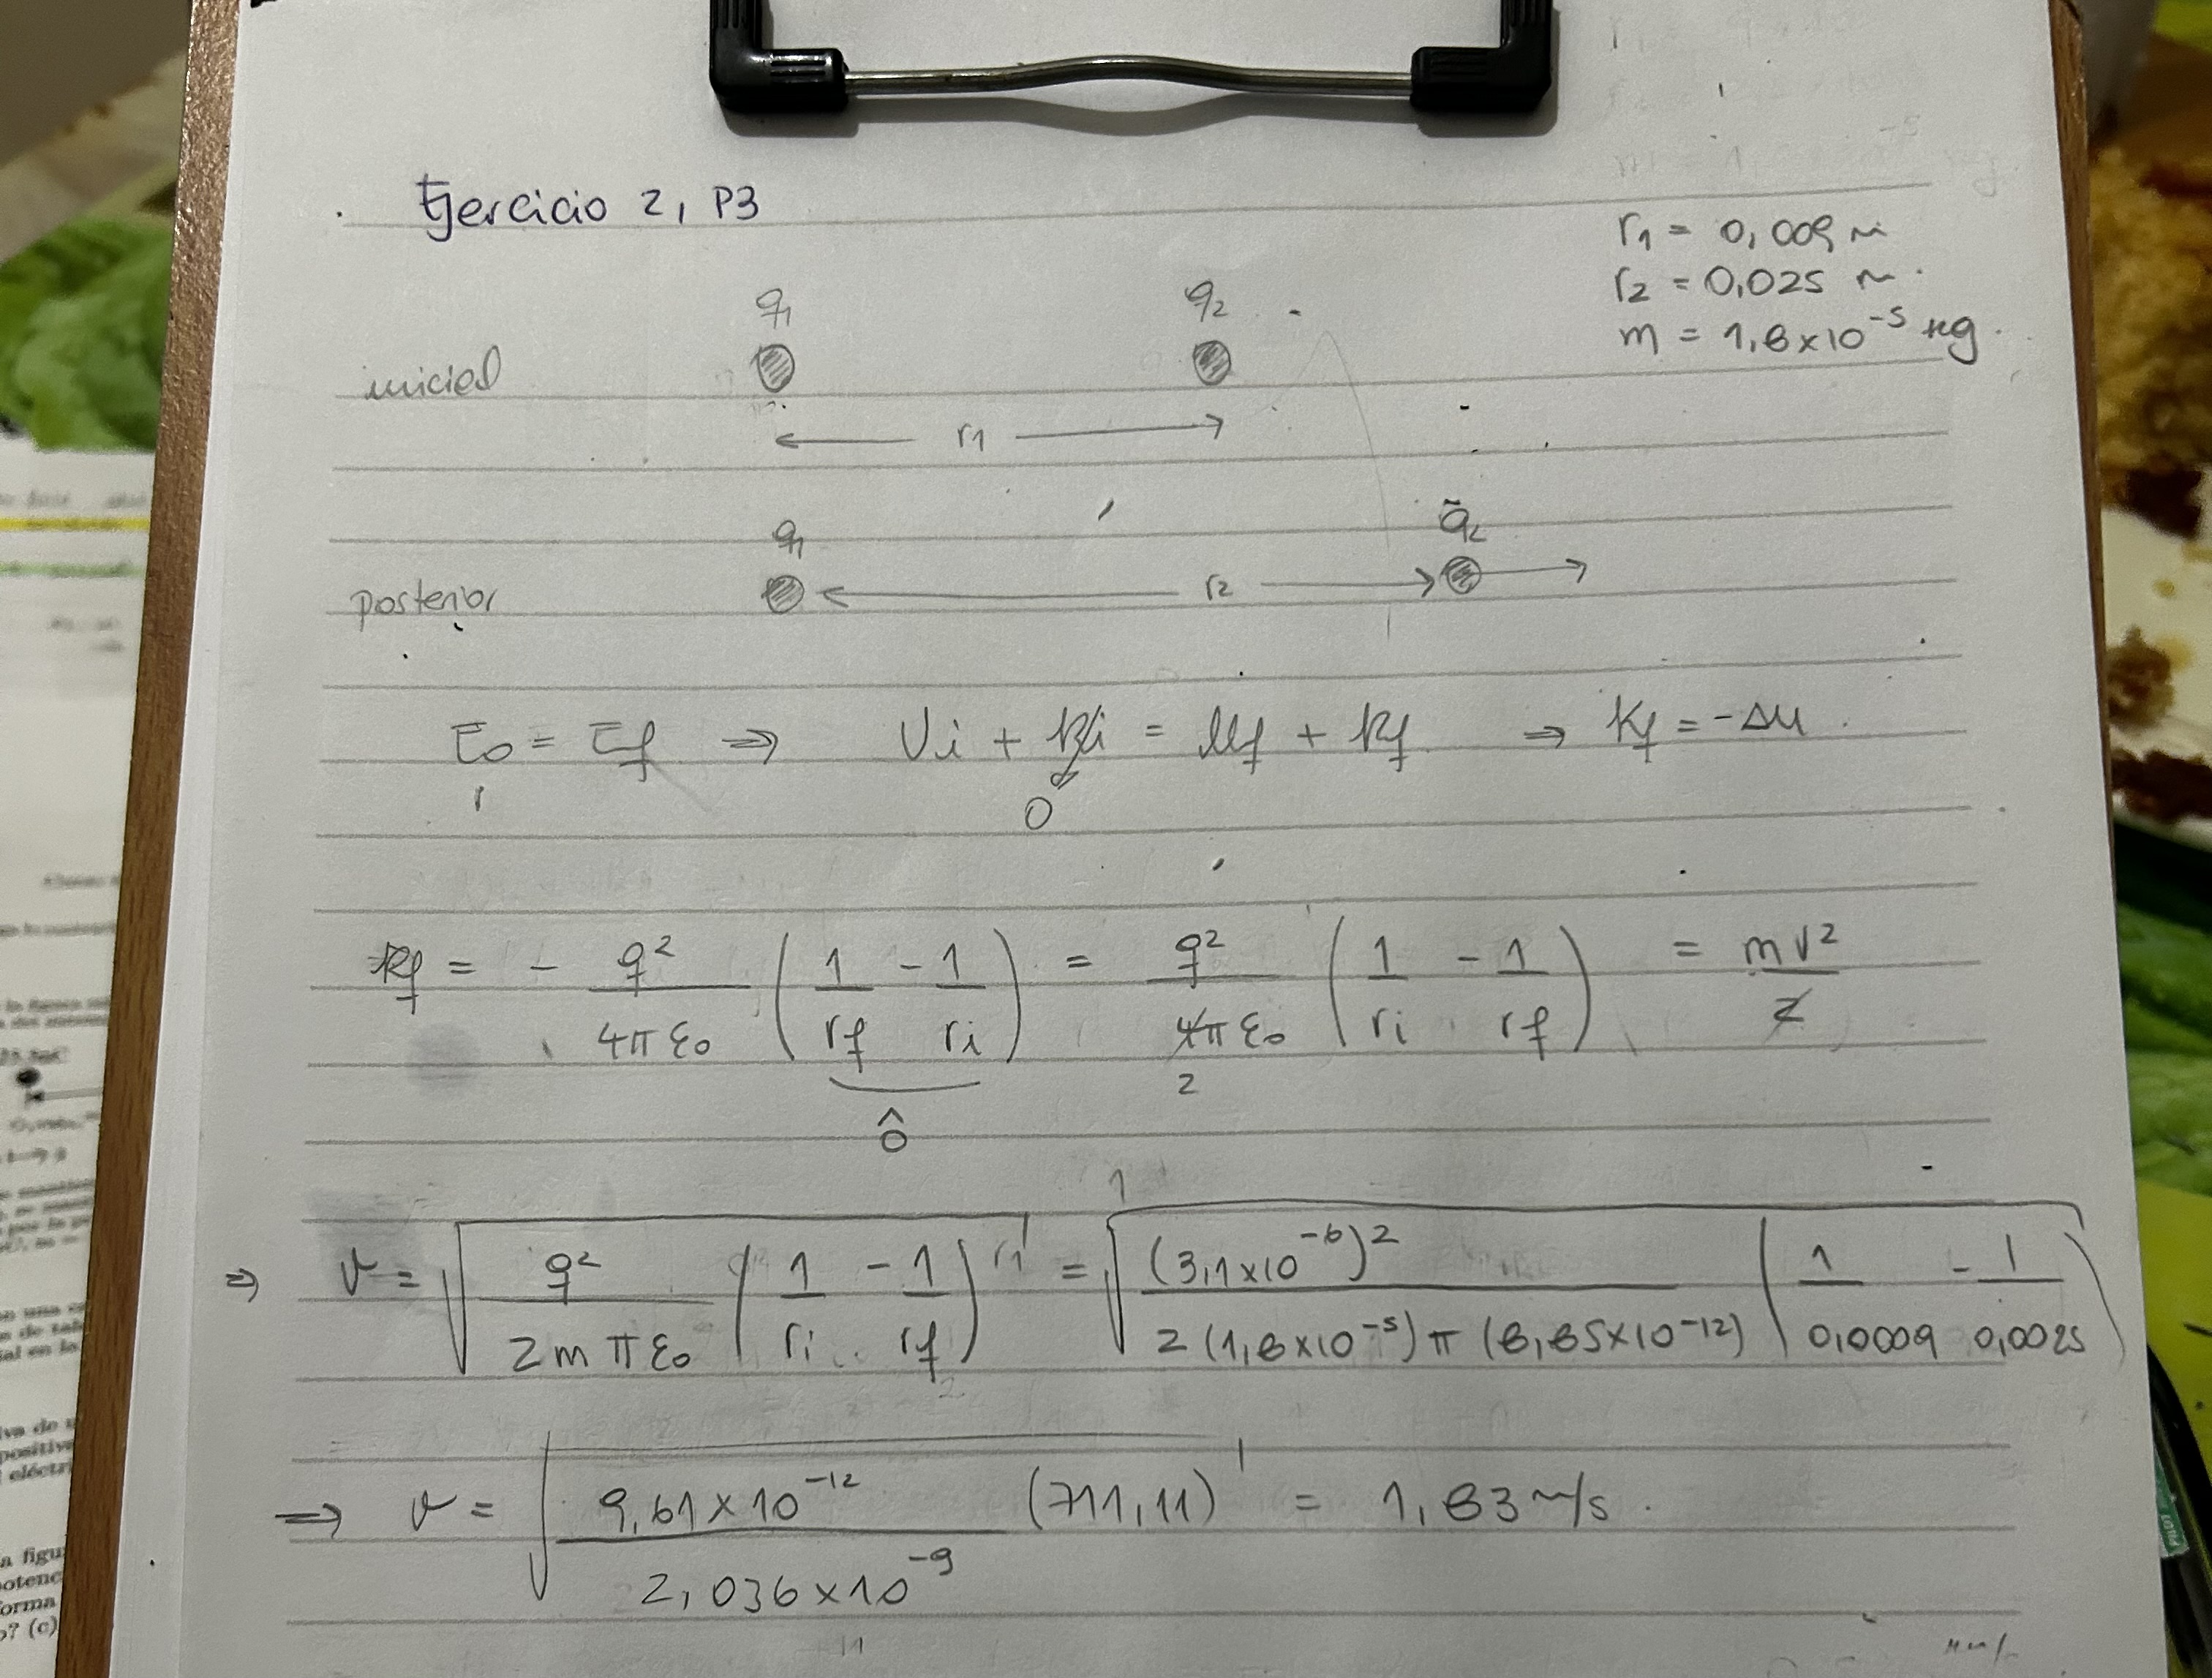 Ejercicio 2, P3
r1 = 0,009 m
r2 = 0,025 m
m = 1,8x10^-5 kg
q1 q2
inicial
r1
q1 q2
posterior r2
Eo = Ef ⇒ Ui + Ki = Uf + Kf ⇒ Kf = -ΔU
0
Kf = - q²/(4πεo) (1/rf - 1/ri) = q²/(4πεo) (1/ri - 1/rf) = mv²/2
2
0
⇒ v = √(q²/(2mπεo) (1/ri - 1/rf)) = √((3,1x10^-6)²/(2(1,8x10^-5)π(8,85x10^-12)) (1/0,0009 - 1/0,0025))
⇒ v = √(9,61x10^-12/2,036x10^-9 (711,11)) = 1,83 m/s.
a figu
forma
o? (c)